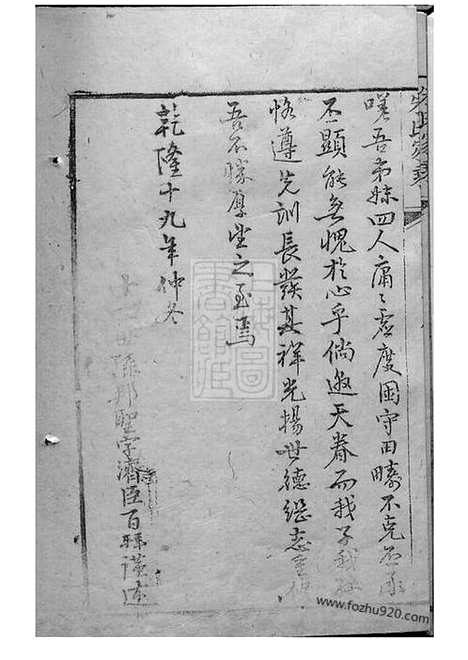 嗟吾弟妹四人庸庸虚度困守田疇不克丕承
丕顯能無愧於心乎倘邀天眷而我子我孫
恪遵先訓長發其祥光揚世德繼志
吾不勝厚望之至焉
乾隆十九年仲冬
孫邦聖字濟臣百拜謹述
上海圖書館藏
www.fozhu920.com